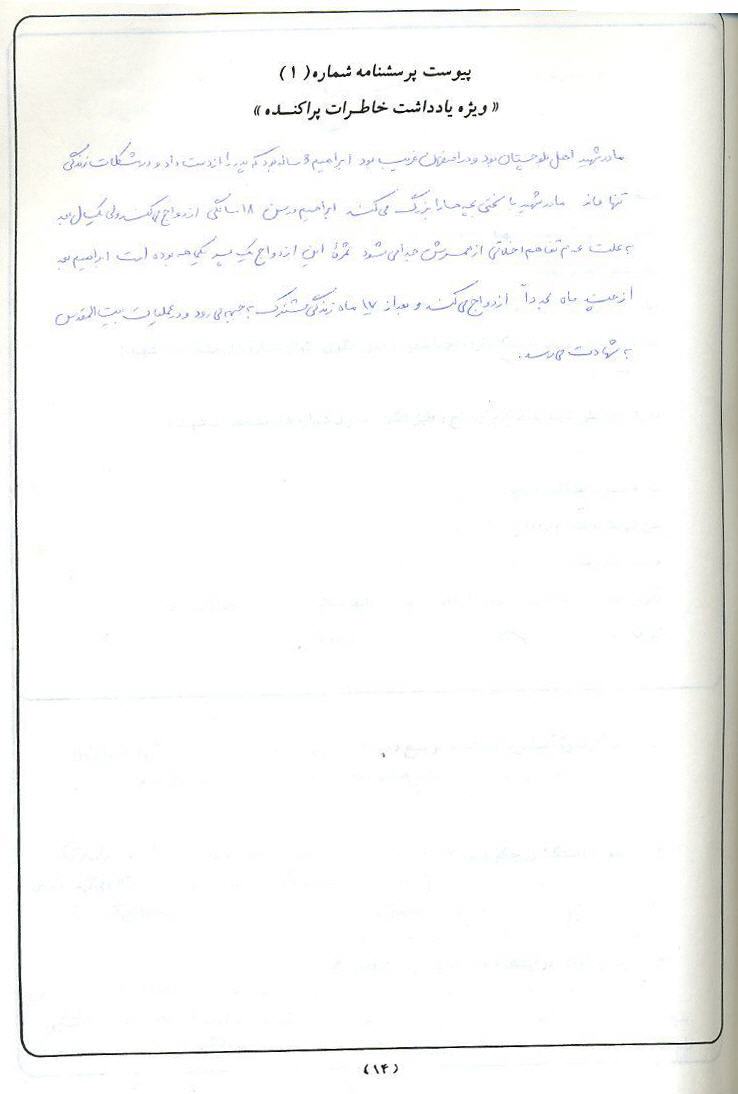 پیوست پرسشنامه شماره (۱)
« ویژه یادداشت خاطرات پراکنده »
مادر شهید اهل بلوچستان بود و در اصفهان غریب بود ابراهیم ۵ ساله بود که پدر را از دست داد و در مشکلات زندگی
تنها ماند مادر شهید با سختی بچه ها را بزرگ می کند ابراهیم در سن ۱۸ سالگی ازدواج می کند ولی یک سال بعد
به علت عدم تفاهم اخلاقی از همسرش جدا می شود ثمرهٔ این ازدواج یک پسر یک ماهه بوده است ابراهیم بعد
از چند ماه مجدداً ازدواج می کند و بعد از ۱۷ ماه زندگی مشترک به جبهه می رود و در عملیات بیت المقدس
به شهادت می رسد.
(۱۴)